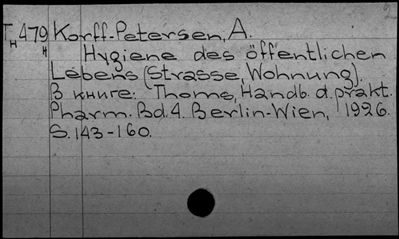 T 479 Korff-Petersen, A.
H H
Hygiene des öffentlichen
Lebens (Strasse, Wohnung).
В книге: Thoms, Handb. d. prakt.
Pharm. Bd. 4. Berlin-Wien, 1926.
S. 143-160.